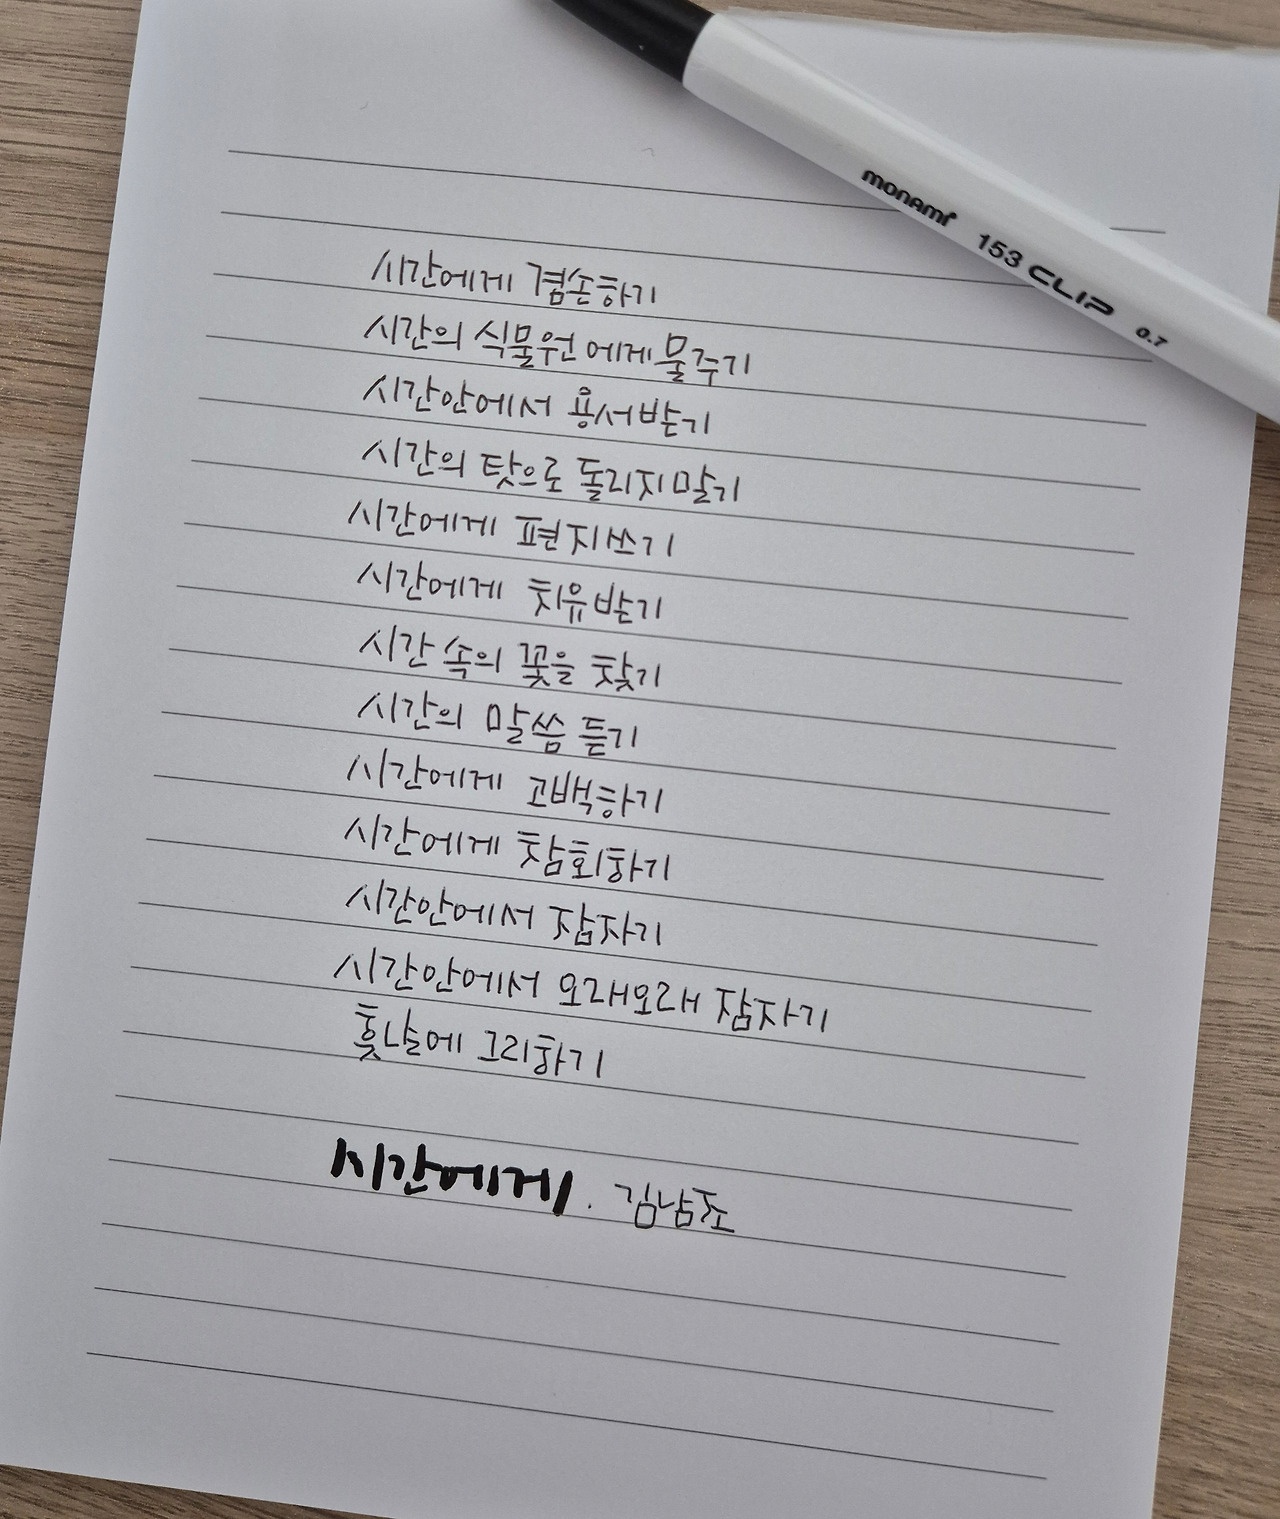 monami 153 CLIP 0.7
시간에게 겸손하기
시간의 식물원에게 물주기
시간안에서 용서받기
시간의 탓으로 돌리지말기
시간에게 편지쓰기
시간에게 치유받기
시간 속의 꽃을 찾기
시간의 말씀 듣기
시간에게 고백하기
시간에게 참회하기
시간안에서 잠자기
시간안에서 오래오래 잠자기
훗날에 그리하기
시간에게. 김남조